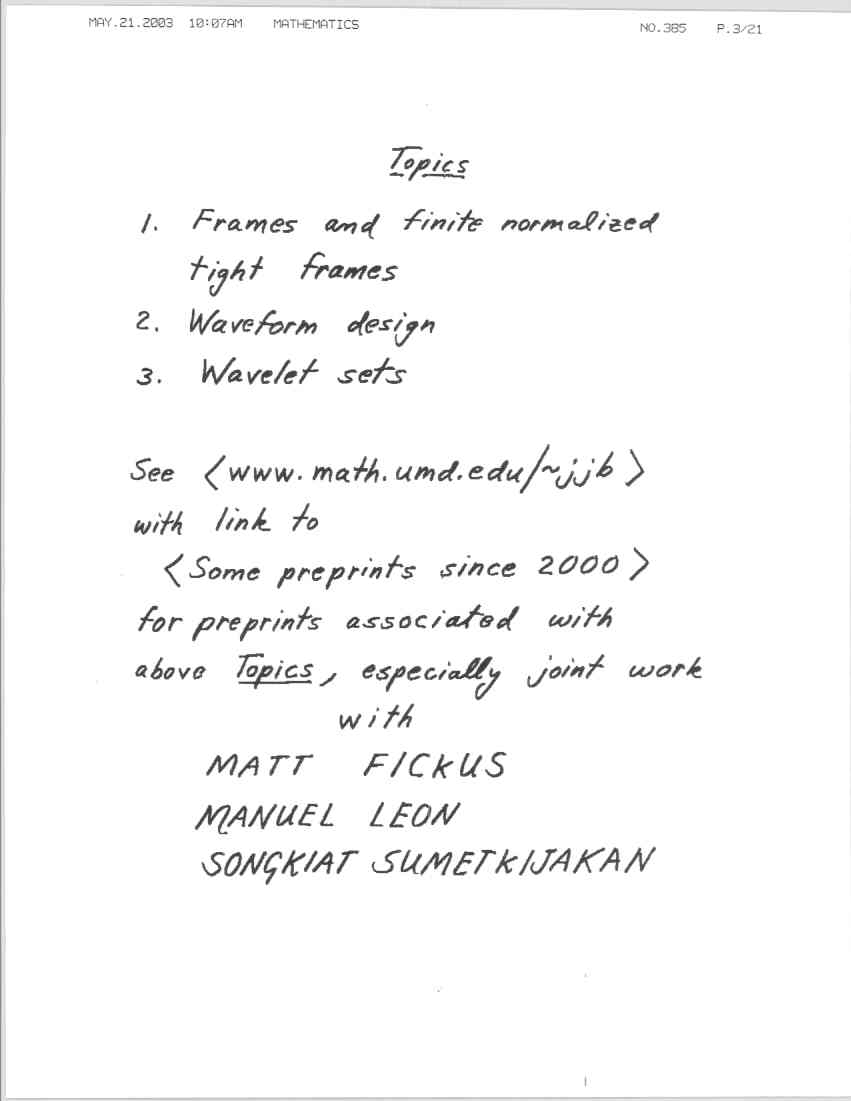 MAY.21.2003 10:07AM MATHEMATICS NO.385 P.3/21
Topics
1. Frames and finite normalized
tight frames
2. Waveform design
3. Wavelet sets
See <www.math.umd.edu/~jjb>
with link to
<Some preprints since 2000>
for preprints associated with
above Topics, especially joint work
with
MATT FICKUS
MANUEL LEON
SONGKIAT SUMETKIJAKAN